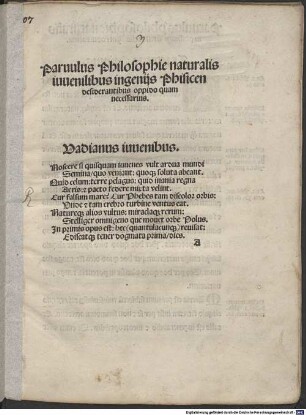 Paruulus Philosophie naturalis
iuuenilibus ingenijs Phisicen
desiderantibus oppido quam
necessarius.
Vadianus iuuenibus.
Noscere si quisquam iuuenes vult ardua mundi
Semina: quo veniant: quoq3 soluta abeant.
Quid celum: terre pelagus: quid
Aeris: pacto federe velint.
Cur falsum mare: Cur Phebes tam discolor orbis:
Vnde tam crebro turbine ventus eat.
Natureq3 alios vultus: miracla rerum:
Stelliger omnigeno que mouet orbe Polus.
In primis opus est: hec quantulacunq3 reuisat:
Ediscatq3 tener dogmata prima docens.
a